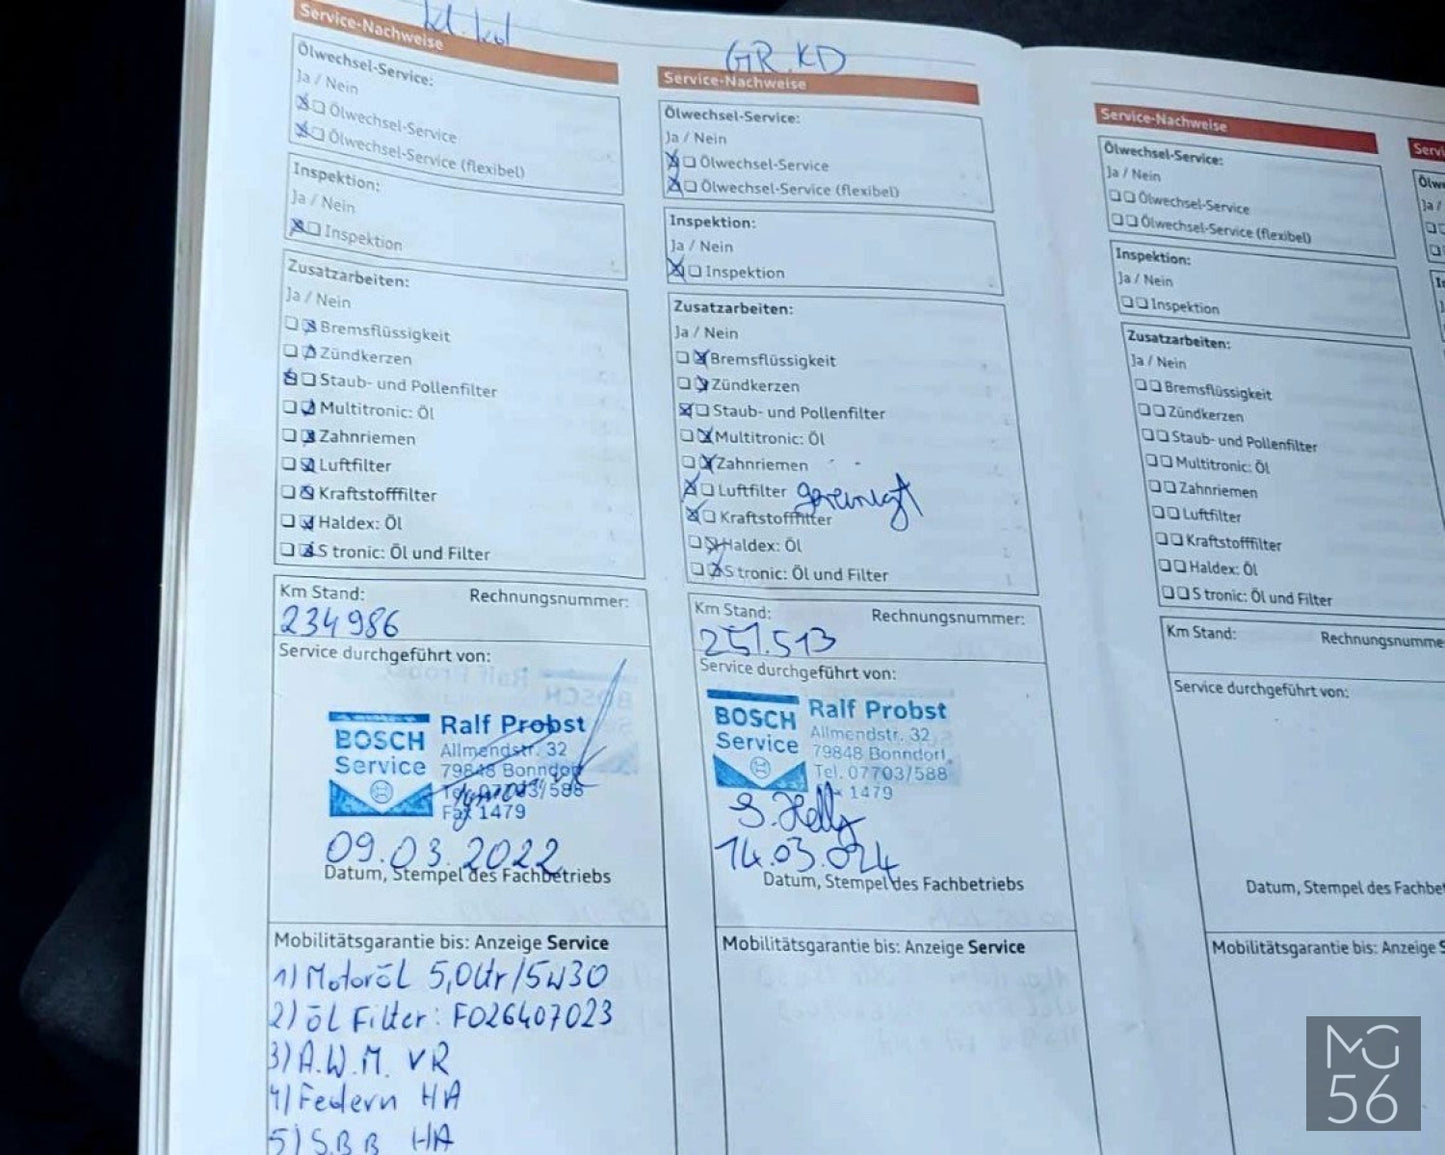 Kl. kd
Service-Nachweise
Ölwechsel-Service:
Ja / Nein
Ölwechsel-Service
Ölwechsel-Service (flexibel)
Inspektion:
Ja / Nein
Inspektion
Zusatzarbeiten:
Ja / Nein
Bremsflüssigkeit
Zündkerzen
Staub- und Pollenfilter
Multitronic: Öl
Zahnriemen
Luftfilter
Kraftstofffilter
Haldex: Öl
S tronic: Öl und Filter
Km Stand: Rechnungsnummer:
234986
Service durchgeführt von:
BOSCH Service
Ralf Probst
Allmendstr. 32
79848 Bonndorf
Tel. 07703/588
Fax 1479
09.03.2022
Datum, Stempel des Fachbetriebs
Mobilitätsgarantie bis: Anzeige Service
1) Motoröl 5,0Ltr/5W30
2) öl Filter: F026407023
3) A.W.M. VR
4) Federn HA
5) S.B.B HA
GR. KD
Service-Nachweise
Ölwechsel-Service:
Ja / Nein
Ölwechsel-Service
Ölwechsel-Service (flexibel)
Inspektion:
Ja / Nein
Inspektion
Zusatzarbeiten:
Ja / Nein
Bremsflüssigkeit
Zündkerzen
Staub- und Pollenfilter
Multitronic: Öl
Zahnriemen
Luftfilter gereinigt
Kraftstofffilter
Haldex: Öl
S tronic: Öl und Filter
Km Stand: Rechnungsnummer:
251.513
Service durchgeführt von:
BOSCH Service
Ralf Probst
Allmendstr. 32
79848 Bonndorf
Tel. 07703/588
1479
14.03.024
Datum, Stempel des Fachbetriebs
Mobilitätsgarantie bis: Anzeige Service
Service-Nachweise
Ölwechsel-Service:
Ja / Nein
Ölwechsel-Service
Ölwechsel-Service (flexibel)
Inspektion:
Ja / Nein
Inspektion
Zusatzarbeiten:
Ja / Nein
Bremsflüssigkeit
Zündkerzen
Staub- und Pollenfilter
Multitronic: Öl
Zahnriemen
Luftfilter
Kraftstofffilter
Haldex: Öl
S tronic: Öl und Filter
Km Stand: Rechnungsnumme
Service durchgeführt von:
Datum, Stempel des Fachbe
Mobilitätsgarantie bis: Anzeige S
Servi
Ölw
Ja /
MG
56